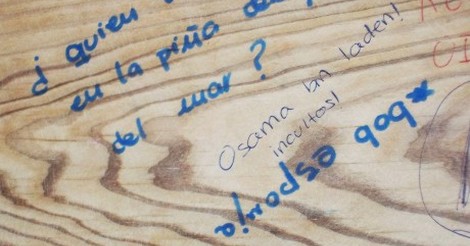 ¿ quien
en la piña
del mar?
Osama bin laden!
incultos!
*bob esponja